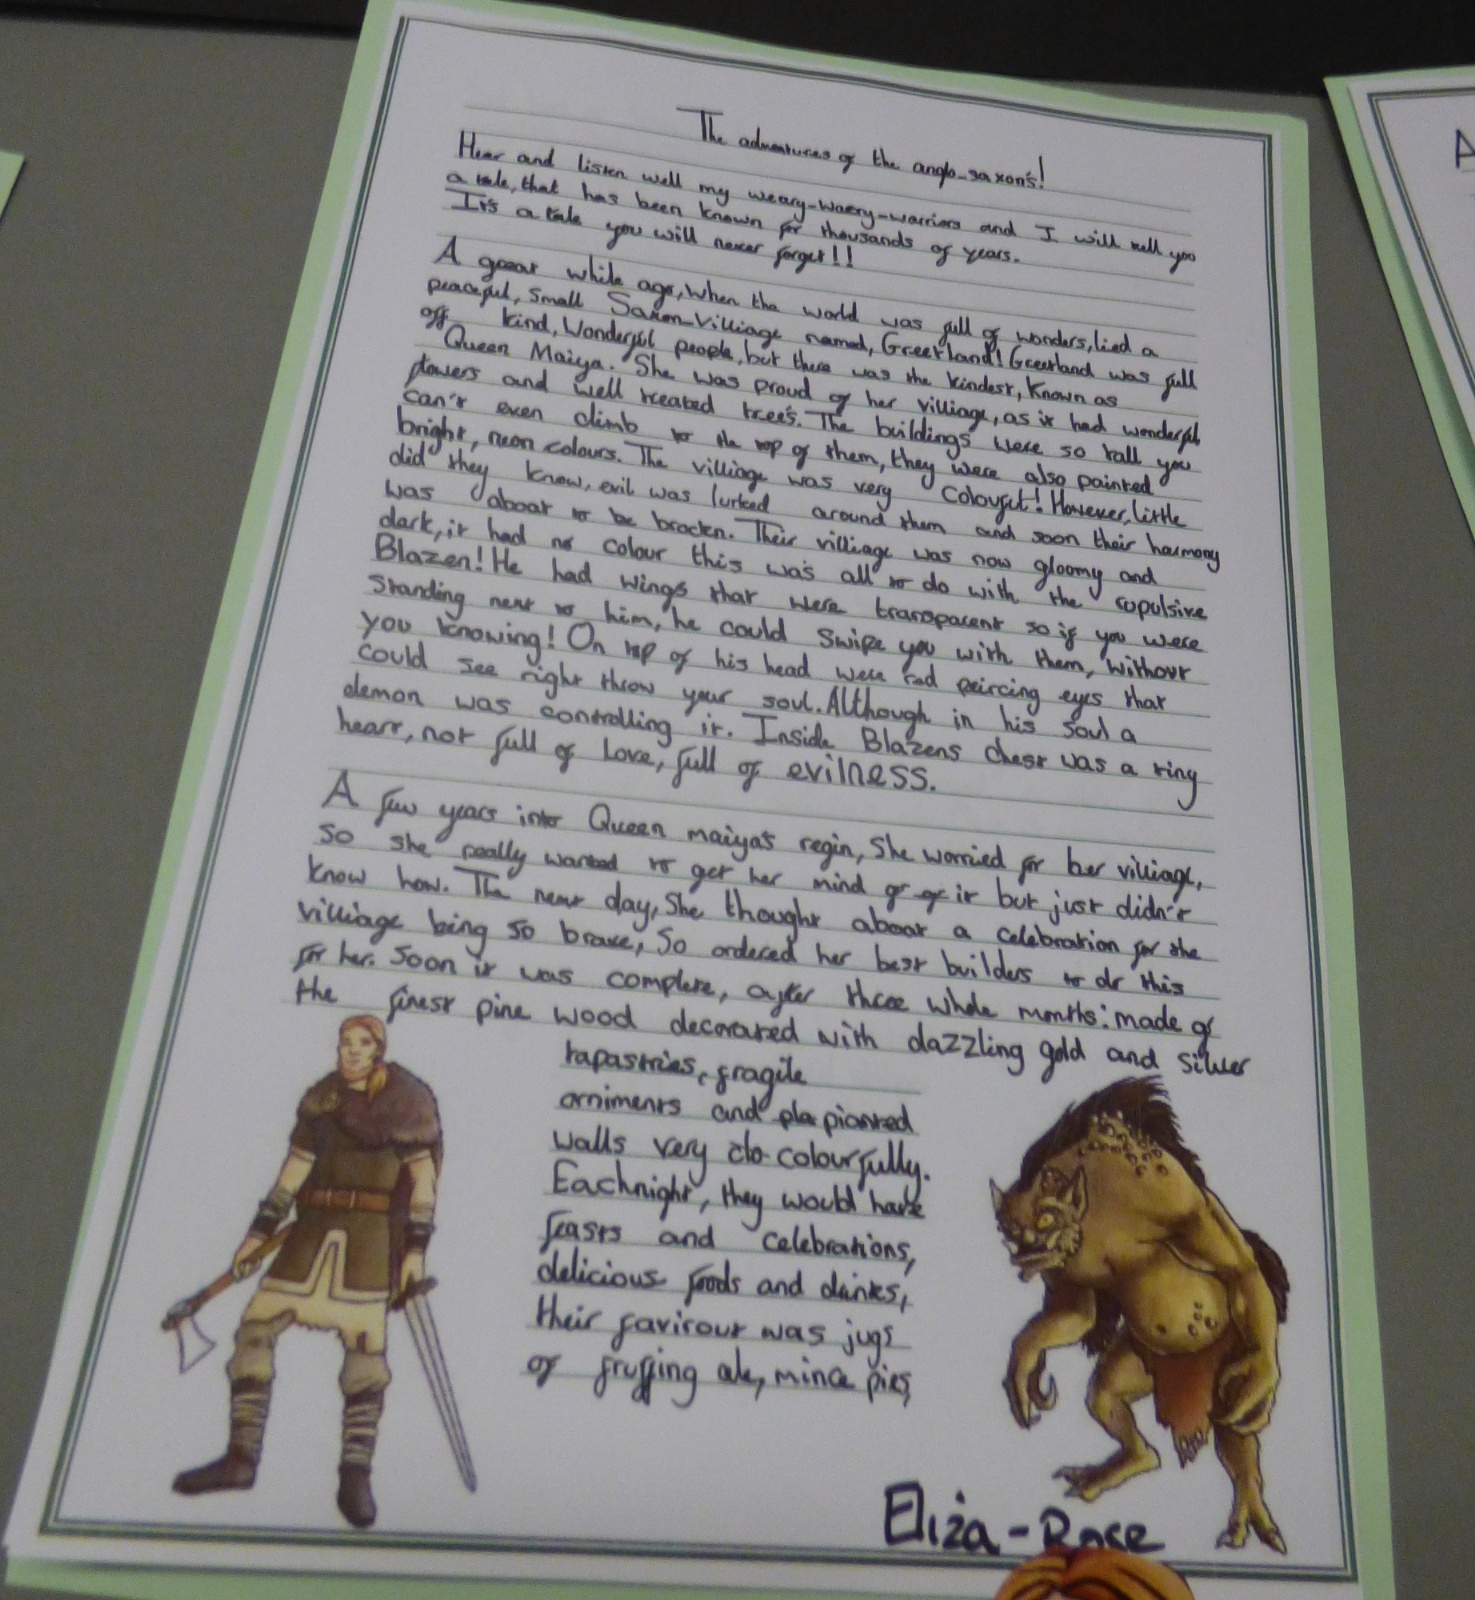 The adventures of the anglo-saxon's!
Hear and listen well my weary-waery-warriors and I will tell you
a tale, that has been known for thousands of years.
It's a tale you will never forget!!
A great while ago, when the world was full of wonders, lied a
peaceful, small Saxon-Villiage named, Greetland! Greetland was full
off kind, Wonderful people, but there was the kindest, Known as
Queen Maiya. She was proud of her villiage, as it had wonderful
flowers and well treated tree's. The buildings were so tall you
can't even climb to the top of them, they were also painted
bright, neon colours. The villiage was very colourful! However, little
did they know, evil was lurked around them and soon their harmony
was about to be brocken. Their villiage was now gloomy and
dark, it had no colour this was all to do with the repulsive
Blazen! He had wings that were transparent so if you were
standing next to him, he could swipe you with them, without
you knowing! On top of his head were red peircing eyes that
could see right throw your soul. Although in his soul a
demon was controlling it. Inside Blazens chest was a ring
heart, not full of love, full of evilness.
A few years into Queen maiyas regin, She worried for her villiage,
so she really wanted to get her mind of of it but just didn't
know how. The next day, She thought about a celebration for the
villiage being so brave, So ordered her best builders to do this
for her. Soon it was complete, after three whole months: made of
the finest pine wood decorated with dazzling gold and silver
tapastries, fragile
orniments and pla pianted
walls very clo colourfully.
Eachnight, they would have
feasts and celebrations,
delicious foods and drinks,
their favirout was jugs
of fruffing ale, mince pies,
Eliza-Rose
A